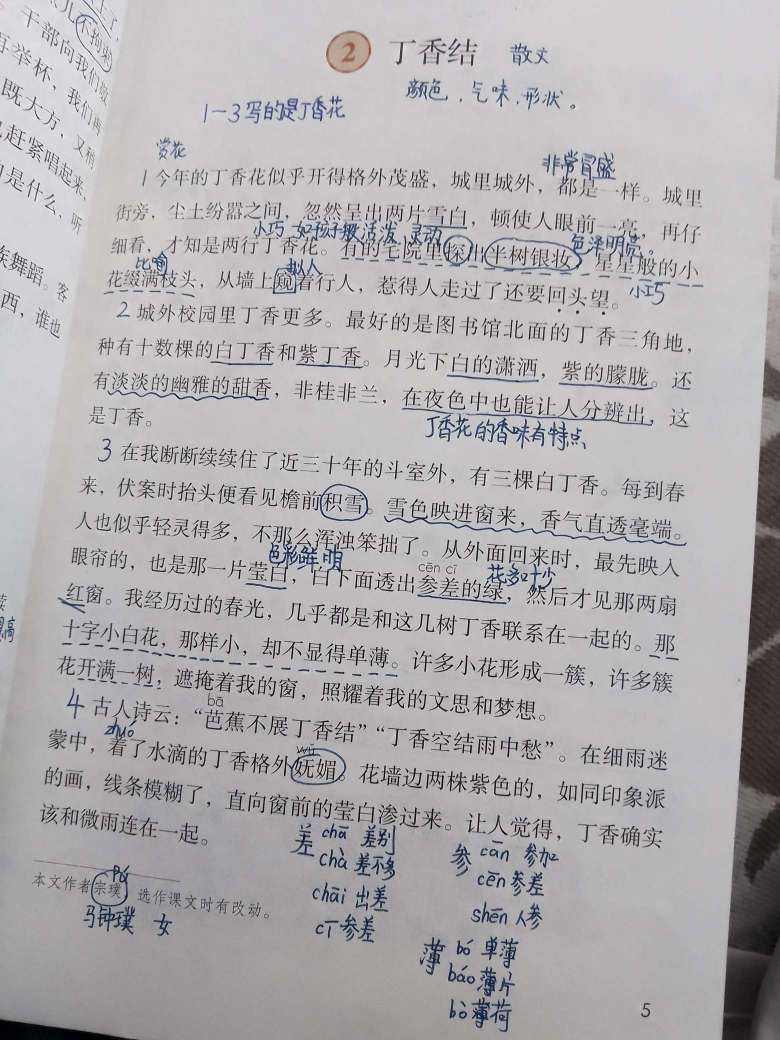 不拘束
干部向我们敬
再举杯，我们再
既大方，又稍
赶紧唱起来，
是什么，听
族舞蹈。客
西，谁也
2 丁香结 散文
颜色、气味、形状。
1—3写的是丁香花
赏花
非常冒盛
1今年的丁香花似乎开得格外茂盛，城里城外，都是一样。城里
街旁，尘土纷嚣之间，忽然呈出两片雪白，顿使人眼前一亮，再仔
小巧 如孩子般活泼 灵动 色泽明亮。
细看，才知是两行丁香花。有的宅院里探出半树银妆，星星般的小
比喻 拟人 小巧
花缀满枝头，从墙上窥着行人，惹得人走过了还要回头望。
2 城外校园里丁香更多。最好的是图书馆北面的丁香三角地，
种有十数棵的白丁香和紫丁香。月光下白的潇洒，紫的朦胧。还
有淡淡的幽雅的甜香，非桂非兰，在夜色中也能让人分辨出，这
是丁香。
丁香花的香味有特点
3 在我断断续续住了近三十年的斗室外，有三棵白丁香。每到春
来，伏案时抬头便看见檐前积雪。雪色映进窗来，香气直透毫端。
人也似乎轻灵得多，不那么浑浊笨拙了。从外面回来时，最先映入
色彩鲜明 cēn cī 花多叶少
眼帘的，也是那一片莹白，白下面透出参差的绿，然后才见那两扇
红窗。我经历过的春光，几乎都是和这几树丁香联系在一起的。那
十字小白花，那样小，却不显得单薄。许多小花形成一簇，许多簇
花开满一树，遮掩着我的窗，照耀着我的文思和梦想。
bā
4 古人诗云：“芭蕉不展丁香结”“丁香空结雨中愁”。在细雨迷
zhuó wǔ
蒙中，着了水滴的丁香格外妩媚。花墙边两株紫色的，如同印象派
的画，线条模糊了，直向窗前的莹白渗过来。让人觉得，丁香确实
该和微雨连在一起。
差 chā 差别
chà 差不多
chāi 出差
cī 参差
参 cān 参加
cēn 参差
shēn 人参
薄 bó 单薄
báo 薄片
bò 薄荷
pú
本文作者宗璞，选作课文时有改动。
马钟璞 女
5